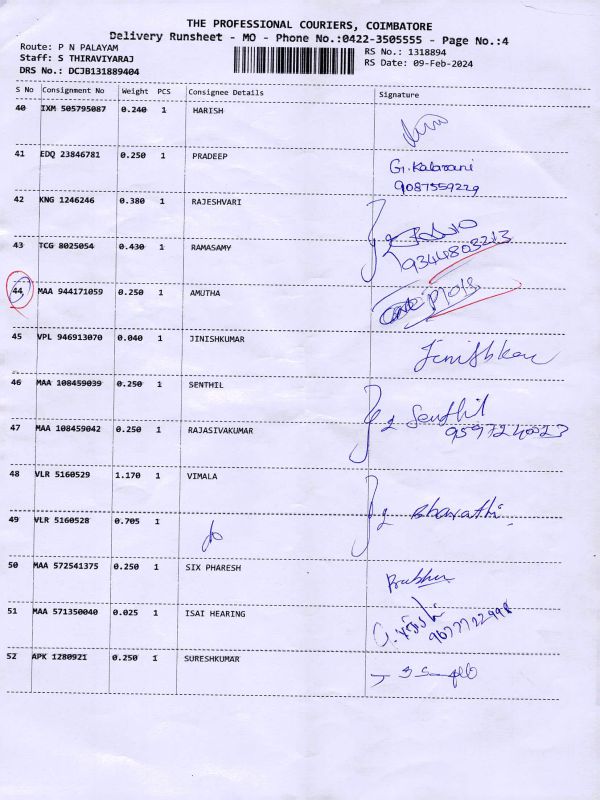 THE PROFESSIONAL COURIERS, COIMBATORE
Delivery Runsheet - MO - Phone No.:0422-3505555 - Page No.:4
Route: P N PALAYAM
RS No.: 1318894
Staff: S THIRAVIYARAJ
RS Date: 09-Feb-2024
DRS No.: DCJB131889404
S No Consignment No Weight PCS Consignee Details Signature
40 IXM 505795087 0.240 1 HARISH
41 EDQ 23846781 0.250 1 PRADEEP G. Kalarani
9087559229
42 KNG 1246246 0.380 1 RAJESHVARI
43 TCG 8025054 0.430 1 RAMASAMY 2
9344803213
44 MAA 944171059 0.250 1 AMUTHA
45 VPL 946913070 0.040 1 JINISHKUMAR
46 MAA 108459039 0.250 1 SENTHIL
47 MAA 108459042 0.250 1 RAJASIVAKUMAR 2 Senthil
9597240023
48 VLR 5160529 1.170 1 VIMALA
49 VLR 5160528 0.705 1 do 2 Bharathi
50 MAA 572541375 0.250 1 SIX PHARESH Prabhu
51 MAA 571350040 0.025 1 ISAI HEARING
52 APK 1280921 0.250 1 SURESHKUMAR